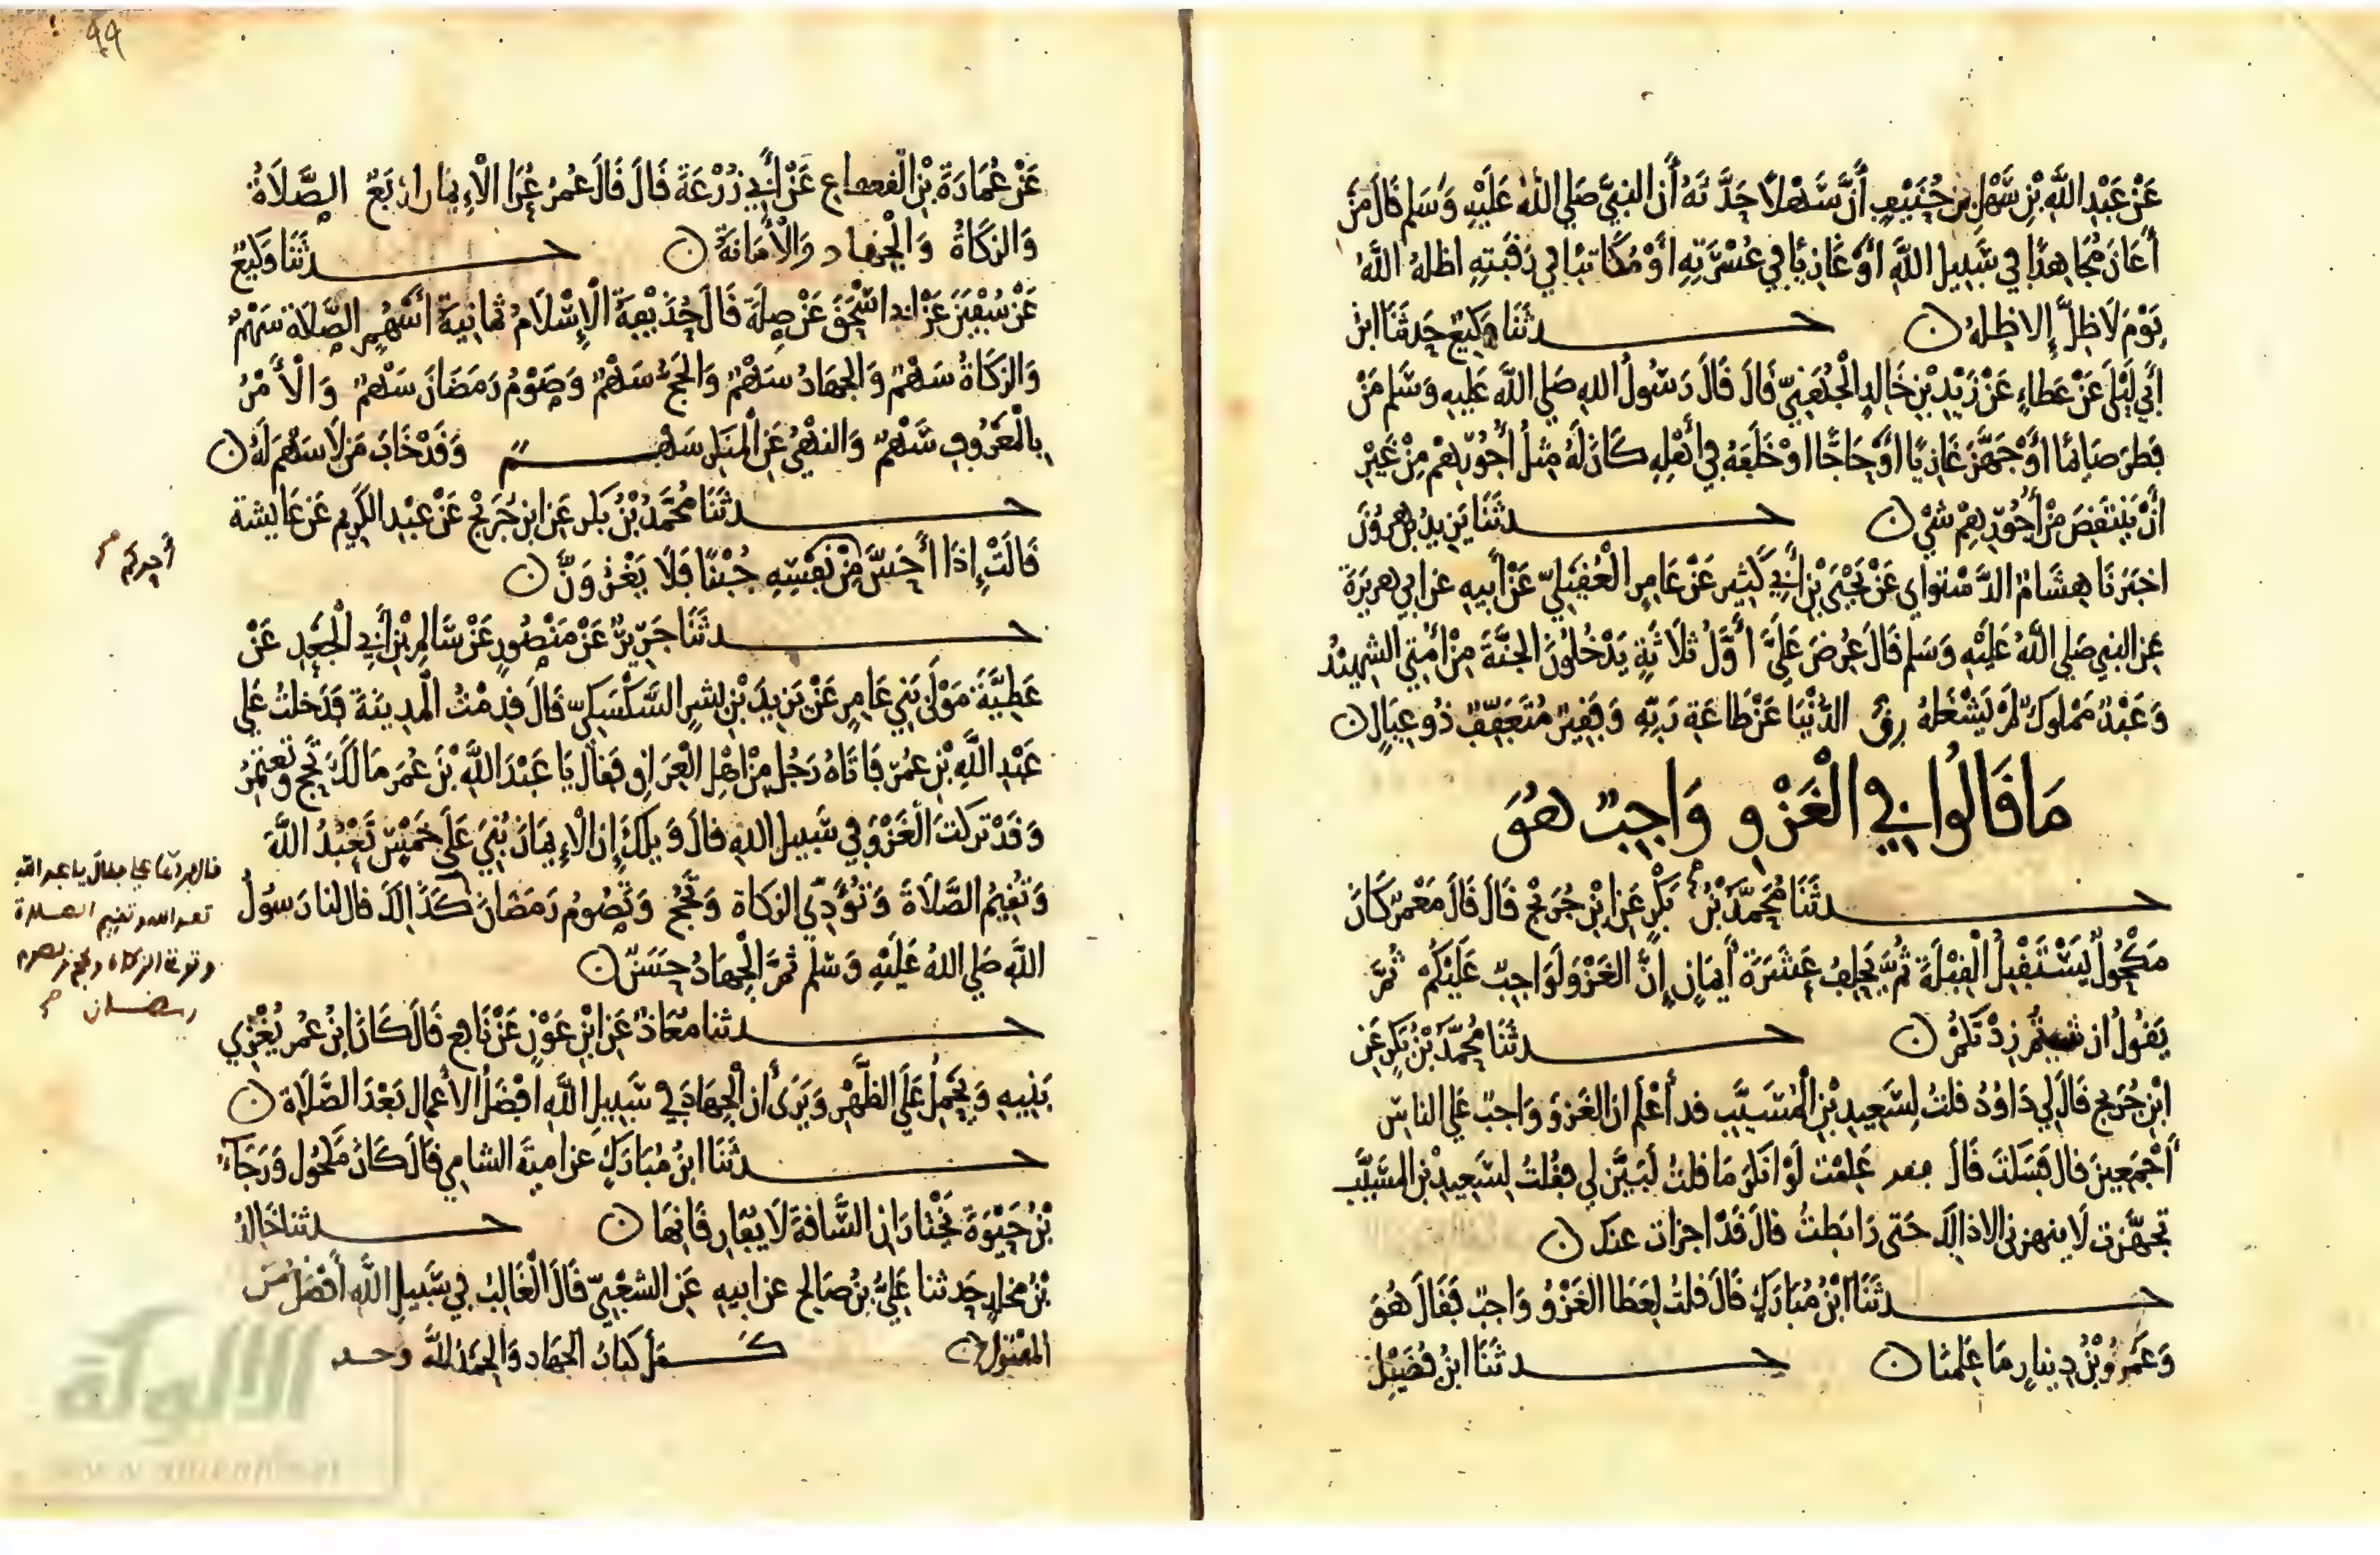 عَنْ عَبْدِ اللَّهِ بْنِ سَهْلِ بْنِ حُنَيْفٍ أَنَّ سَهْلًا حَدَّثَهُ أَن النبيَّ صَلي اللهُ عَلَيْهِ وَسَلم قَالَ مَنْ
أَعَانَ مُجَاهِدًا فِي سَبِيلِ اللَّهِ أَوْ غَازِيًا فِي عُسْرَتِهِ أَوْ مُكَاتبًا فِي رَقَبَتِهِ اظلهُ اللهُ
يَوْمَ لَا ظِلَّ إِلا ظِلهُ ن حـــدثَنَا وَكِيعٌ حَدثَنَا ابْنُ
أَبِي لَيْلَى عَنْ عَطَاءٍ عَنْ زَيْدِ بْنِ خَالِدٍ الْجُهَنِيِّ قَالَ قَالَ رَسُولُ اللهِ صَلي اللَّه عَلَيهِ وَسَّلم مَنْ
فَطرَ صَائِمًا أَوْ جَهَّزَ غَازِيًا أَوْ حَاجًّا اوْ خَلَفَهُ فِي أَهْلِهِ كَانَ لَهُ مِثلُ أُجُورِهِمْ مِنْ غَيْرِ
أَنْ يَنْتَقِصَ مِنْ أُجُورِهِمْ شيْ ن حـــدثَنَا يَزِيدُ بن هرُونَ
اخبَرَنَا هِشَامٌ الدَّسْتوَاي عَنْ يَحْيَى بْنِ أَبِي كَثِيرٍ عَنْ عَامِرٍ الْعُقَيْلِيِّ عَنْ أَبِيهِ عَن ابي هريرَةَ
عَنِ النبي صَلي اللَّهُ عَلَيْهِ وَسَلم قَالَ عُرِضَ عَلَيَّ أَوَّلُ ثَلَاثَةٍ يَدْخُلُونَ الجَنَّةَ مِنْ أُمَّتِي الشهِيدُ
وَعَبْدٌ مَمْلوكٌ لَمْ يَشْغَلهُ رِقُّ الدُّنْيَا عَنْ طَاعَةِ رَبِّهِ وَفَقِيرٌ مُتَعَفِّفٌ ذُو عِيَالٍ ن
مَا قَالُوا فِي الْغَزْوِ وَاجِبٌ هُوَ
حـــدثَنَا مُحَمَّدُ بْنُ بَكْرٍ عَنِ ابْنِ جُرَيْجٍ قَالَ قَالَ مَعْمَرٌ كَانَ
مَكْحُولٌ يَسْتَقْبِلُ الْقِبْلَةَ ثُمَّ يَحْلِفُ عَشَرَةَ أَيمَانٍ إِنَّ الغَزْوَ لَوَاجِبٌ عَلَيْكُمْ ثُمَّ
يَقُولُ ان شيتُمْ زِدْتكُمْ ن حـــدثَنَا مُحَمَّدُ بْنُ بَكْرٍ عَنِ
ابْنِ جُرَيجٍ قَالَ لِي دَاوُدُ قلتُ لِسَعِيدِ بْنِ الْمُسَيَّبِ قد أَعْلَم ان الغَزْوَ وَاجبٌ عَلي الناسِ
أَجْمَعِينَ قال فَسَكَتَ قَالَ فقد عَلِمْت لَوْ انكرَ مَا قلتُ لَبَيَّنَ لِي فقُلتُ لِسَعِيدِ بْنِ المسَيَّب
تجَهَّزت لا ينهزني الا ذالك حَتى رَابَطتُ قالَ قَدْ اجزات عنك ن
حـــدثَنَا ابْنُ مُبَارَكٍ قَالَ قلتُ لِعَطَا الغَزْوُ وَاجبٌ فَقَالَ هُوَ
وَعَمْرُو بْنُ دِينارٍ مَا عَلِمْنا ن حـــدثَنَا ابنُ فُضَيْلٍ
٩٩
عَنْ عُمَارَةَ بْنِ القعقاع عَنْ أَبِي زُرْعَةَ قَالَ قَالَ عُمَرُ عُرَا الْإِيمَانِ ارْبَعٌ الصَّلَاةُ
وَالزكَاةُ وَالْجِهَاد وَالْأَمَانَةُ ن حـــدثَنَا وَكِيعٌ
عَنْ سُفْيَنَ عَنْ ابي اسْحَقَ عَنْ صِلَةَ قَالَ حُذَيْفَةُ الْإِسْلَامُ ثَمَانِيَةُ أَسْهُمٍ الصَّلَاة سَهْمٌ
وَالزكَاةُ سَهْمٌ وَالجهَادُ سَهْمٌ وَالحَجُّ سَهْمٌ وَصَوْمُ رَمَضَانَ سَهْمٌ وَالْأَمْرُ
بِالْمَعْرُوفِ سَهْمٌ وَالنهْيُ عَنِ الْمُنْكَرِ سَهـــمٌ وَقَدْ خَابَ مَن لَا سَهْمَ لَهُ ن
حـــدثَنَا مُحَمَّدُ بْنُ بَكْرٍ عَنِ ابنِ جُرَيْجٍ عَنْ عَبْدِ الْكَرِيمِ عَنْ عَايشة
قَالَتْ إِذَا أَحَسَّ مِنْ نَفْسِهِ جُبْنًا فَلَا يَغْزُوَنَّ ن
أحدكم صح
حـــدثَنَا جَرِيرٌ عَنْ مَنْصُورٍ عَنْ سَالِمِ بْنِ أَبِي الْجَعْدِ عَنْ
عَطِيَّةَ مَوْلَى بَنِي عَامِرٍ عَنْ يَزِيدَ بْنِ بِشرٍ السَّكْسَكِيِّ قَالَ قدِمْتُ الْمَدِينَةَ فَدَخلتُ عَلي
عَبْدِ اللَّهِ بْنِ عُمَرَ فَاتَاهُ رَجُلٌ مِنْ اهْلِ الْعِرَاقِ فَقالَ يَا عَبْدَ اللَّهِ بْنَ عُمَرَ مَا لَكَ تَحُجُّ وَتَعْتَمِرُ
وَقَدْ تركتَ الْغَزْوَ فِي سَبِيلِ اللهِ قالَ وَيلَكَ إِن الْإِيمَانَ بُنِيَ عَلَى خَمْسٍ تَعْبُدُ اللَّهَ
وَتُقِيمُ الصَّلَاةَ وَتُؤَدِّي الزكَاةَ وَتَحُجُّ وَتَصُومُ رَمَضَانَ كَذَالكَ قال لنا رَسُولُ
اللهِ صَلي اللهُ عَلَيْهِ وَسَلم ثُمَّ الْجِهَادُ حَسَنٌ ن
فقال يا عبد الله
تعبد الله وتقيم الصلاة
وتوتي الزكاة وتحج وتصوم
رمضان صح
حـــدثنا مُعَاذٌ عَنِ ابْنِ عَوْنٍ عَنْ نَافِعٍ قَالَ كَانَ ابْنُ عُمَرَ يُغْزِي
بَنِيهِ وَيَحْمِلُ عَلَى الظَّهْرِ وَيَرَى أَن الْجِهَادَ فِي سَبِيلِ اللَّهِ افْضَلُ الاعْمَالِ بَعْدَ الصَّلَاةِ ن
حـــدثَنَا ابنُ مُبَارَكٍ عَن اميةَ الشامِي قَالَ كَانَ مَكْحُول وَرَجَاءُ
بْنُ حَيْوَةَ يَخْتَارَانِ السَّاقةَ لَا يُفَارِقَانِهَا ن حـــدثنا خَالِدُ
بْنُ مخلدٍ حَدثنا عَلِيُّ بْنُ صَالِحٍ عن ابيهِ عَنِ الشعْبِيِّ قَالَ الْغَالِبُ فِي سَبِيلِ اللَّهِ أَفْضَلُ مِنَ
المقْتُولِ ن كـــمل كتابُ الجهَادِ وَالحمْدُ للهِ وحده
الألوكة